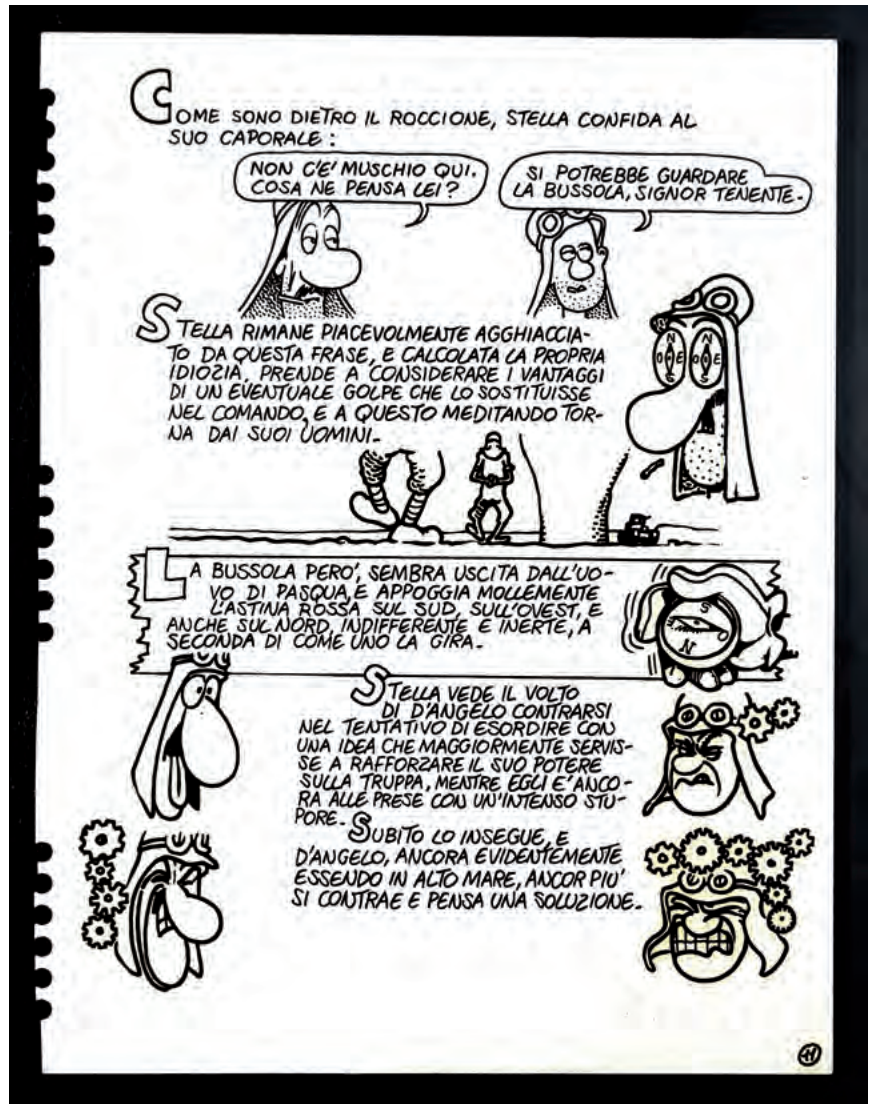 COME SONO DIETRO IL ROCCIONE, STELLA CONFIDA AL
SUO CAPORALE :
NON C'E' MUSCHIO QUI.
COSA NE PENSA LEI ?
SI POTREBBE GUARDARE
LA BUSSOLA, SIGNOR TENENTE.
STELLA RIMANE PIACEVOLMENTE AGGHIACCIA-
TO DA QUESTA FRASE, E CALCOLATA LA PROPRIA
IDIOZIA, PRENDE A CONSIDERARE I VANTAGGI
DI UN EVENTUALE GOLPE CHE LO SOSTITUISSE
NEL COMANDO, E A QUESTO MEDITANDO TOR-
NA DAI SUOI UOMINI.
N
O E
S
N
O E
S
LA BUSSOLA PERO', SEMBRA USCITA DALL'UO-
VO DI PASQUA, E APPOGGIA MOLLEMENTE
L'ASTINA ROSSA SUL SUD, SULL'OVEST, E
ANCHE SUL NORD, INDIFFERENTE E INERTE, A
SECONDA DI COME UNO LA GIRA.
S
O
N
STELLA VEDE IL VOLTO
DI D'ANGELO CONTRARSI
NEL TENTATIVO DI ESORDIRE CON
UNA IDEA CHE MAGGIORMENTE SERVIS-
SE A RAFFORZARE IL SUO POTERE
SULLA TRUPPA, MENTRE EGLI E' ANCO-
RA ALLE PRESE CON UN'INTENSO STU-
PORE.
SUBITO LO INSEGUE, E
D'ANGELO, ANCORA EVIDENTEMENTE
ESSENDO IN ALTO MARE, ANCOR PIU'
SI CONTRAE E PENSA UNA SOLUZIONE.